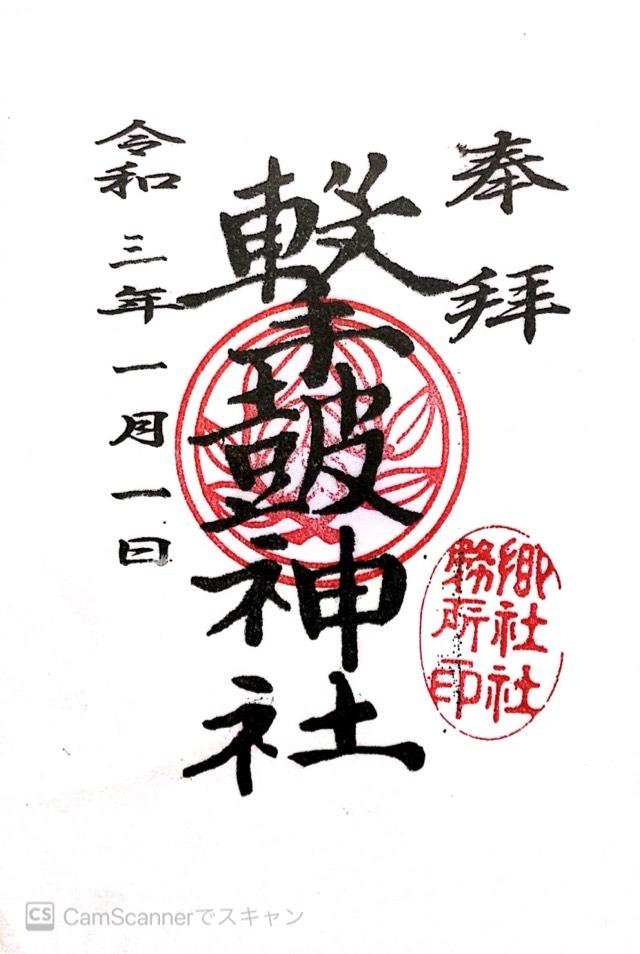 奉拜
撃鼓神社
令和三年一月一日
郷社社
務所印
CS CamScannerでスキャン